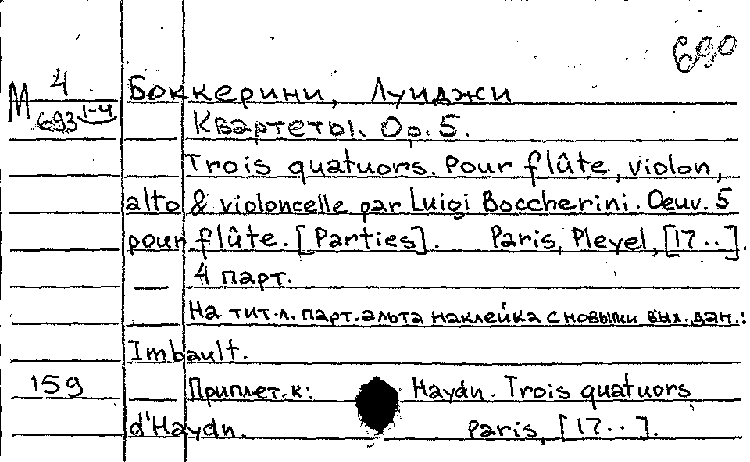 690
М 4
693 1-4
Боккерини, Луиджи
Квартеты. Op. 5.
Trois quatuors. Pour flûte, violon,
alto & violoncelle par Luigi Boccherini. Oeuv. 5
pour flûte. [Parties]. Paris, Pleyel, [17..].
4 парт.
На тит. л. парт. альта наклейка с новыми вых. дан.:
Imbault.
159 Приплет. к: Haydn. Trois quatuors
d'Haydn. Paris, [17..].